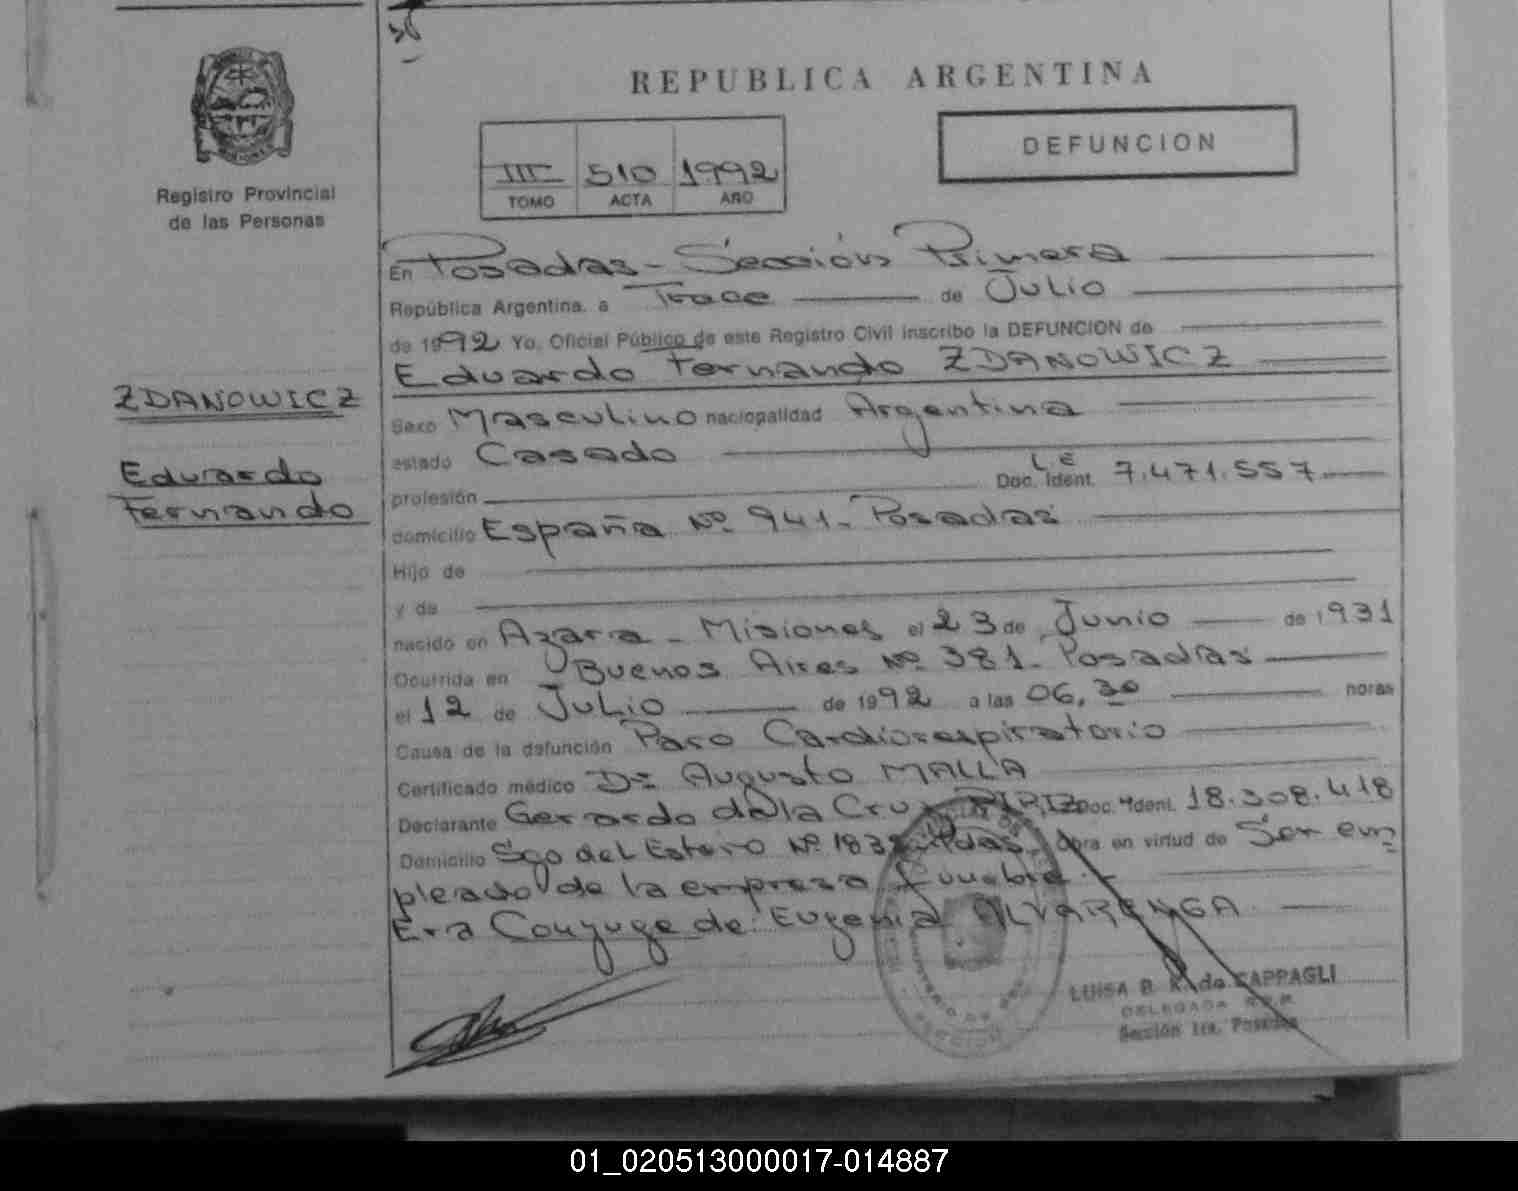 REPUBLICA ARGENTINA
DEFUNCION
III 510 1992
TOMO ACTA AÑO
Registro Provincial
de las Personas
En Posadas - Sección Primera
República Argentina, a Trece de Julio
de 1992 Yo, Oficial Público de este Registro Civil inscribo la DEFUNCION de
Eduardo Fernando ZDANOWICZ
ZDANOWICZ
Eduardo
Fernando
Sexo Masculino nacionalidad Argentina
estado Casado
profesión Doc. Ident. L E 7.471.557
domicilio España Nº 941- Posadas
Hijo de
y de
nacido en Azara - Misiones el 23 de Junio de 1931
Ocurrida en Buenos Aires Nº 381- Posadas
el 12 de Julio de 1992 a las 06,30 horas
Causa de la defunción Paro Cardiorespiratorio
Certificado médico Dr Augusto MALLA
Declarante Gerardo de la Cruz PIRIZ Doc. Ident. 18.308.418
Domicilio Sgo del Estero Nº 183 Pdas. obra en virtud de Ser em
pleado de la empresa funebre.-
Era Conyuge de: Eugenia ALVARENGA
LUISA B. K. de CAPPAGLI
DELEGADA R.P.P.
Sección 1ra. Posadas
01_020513000017-014887